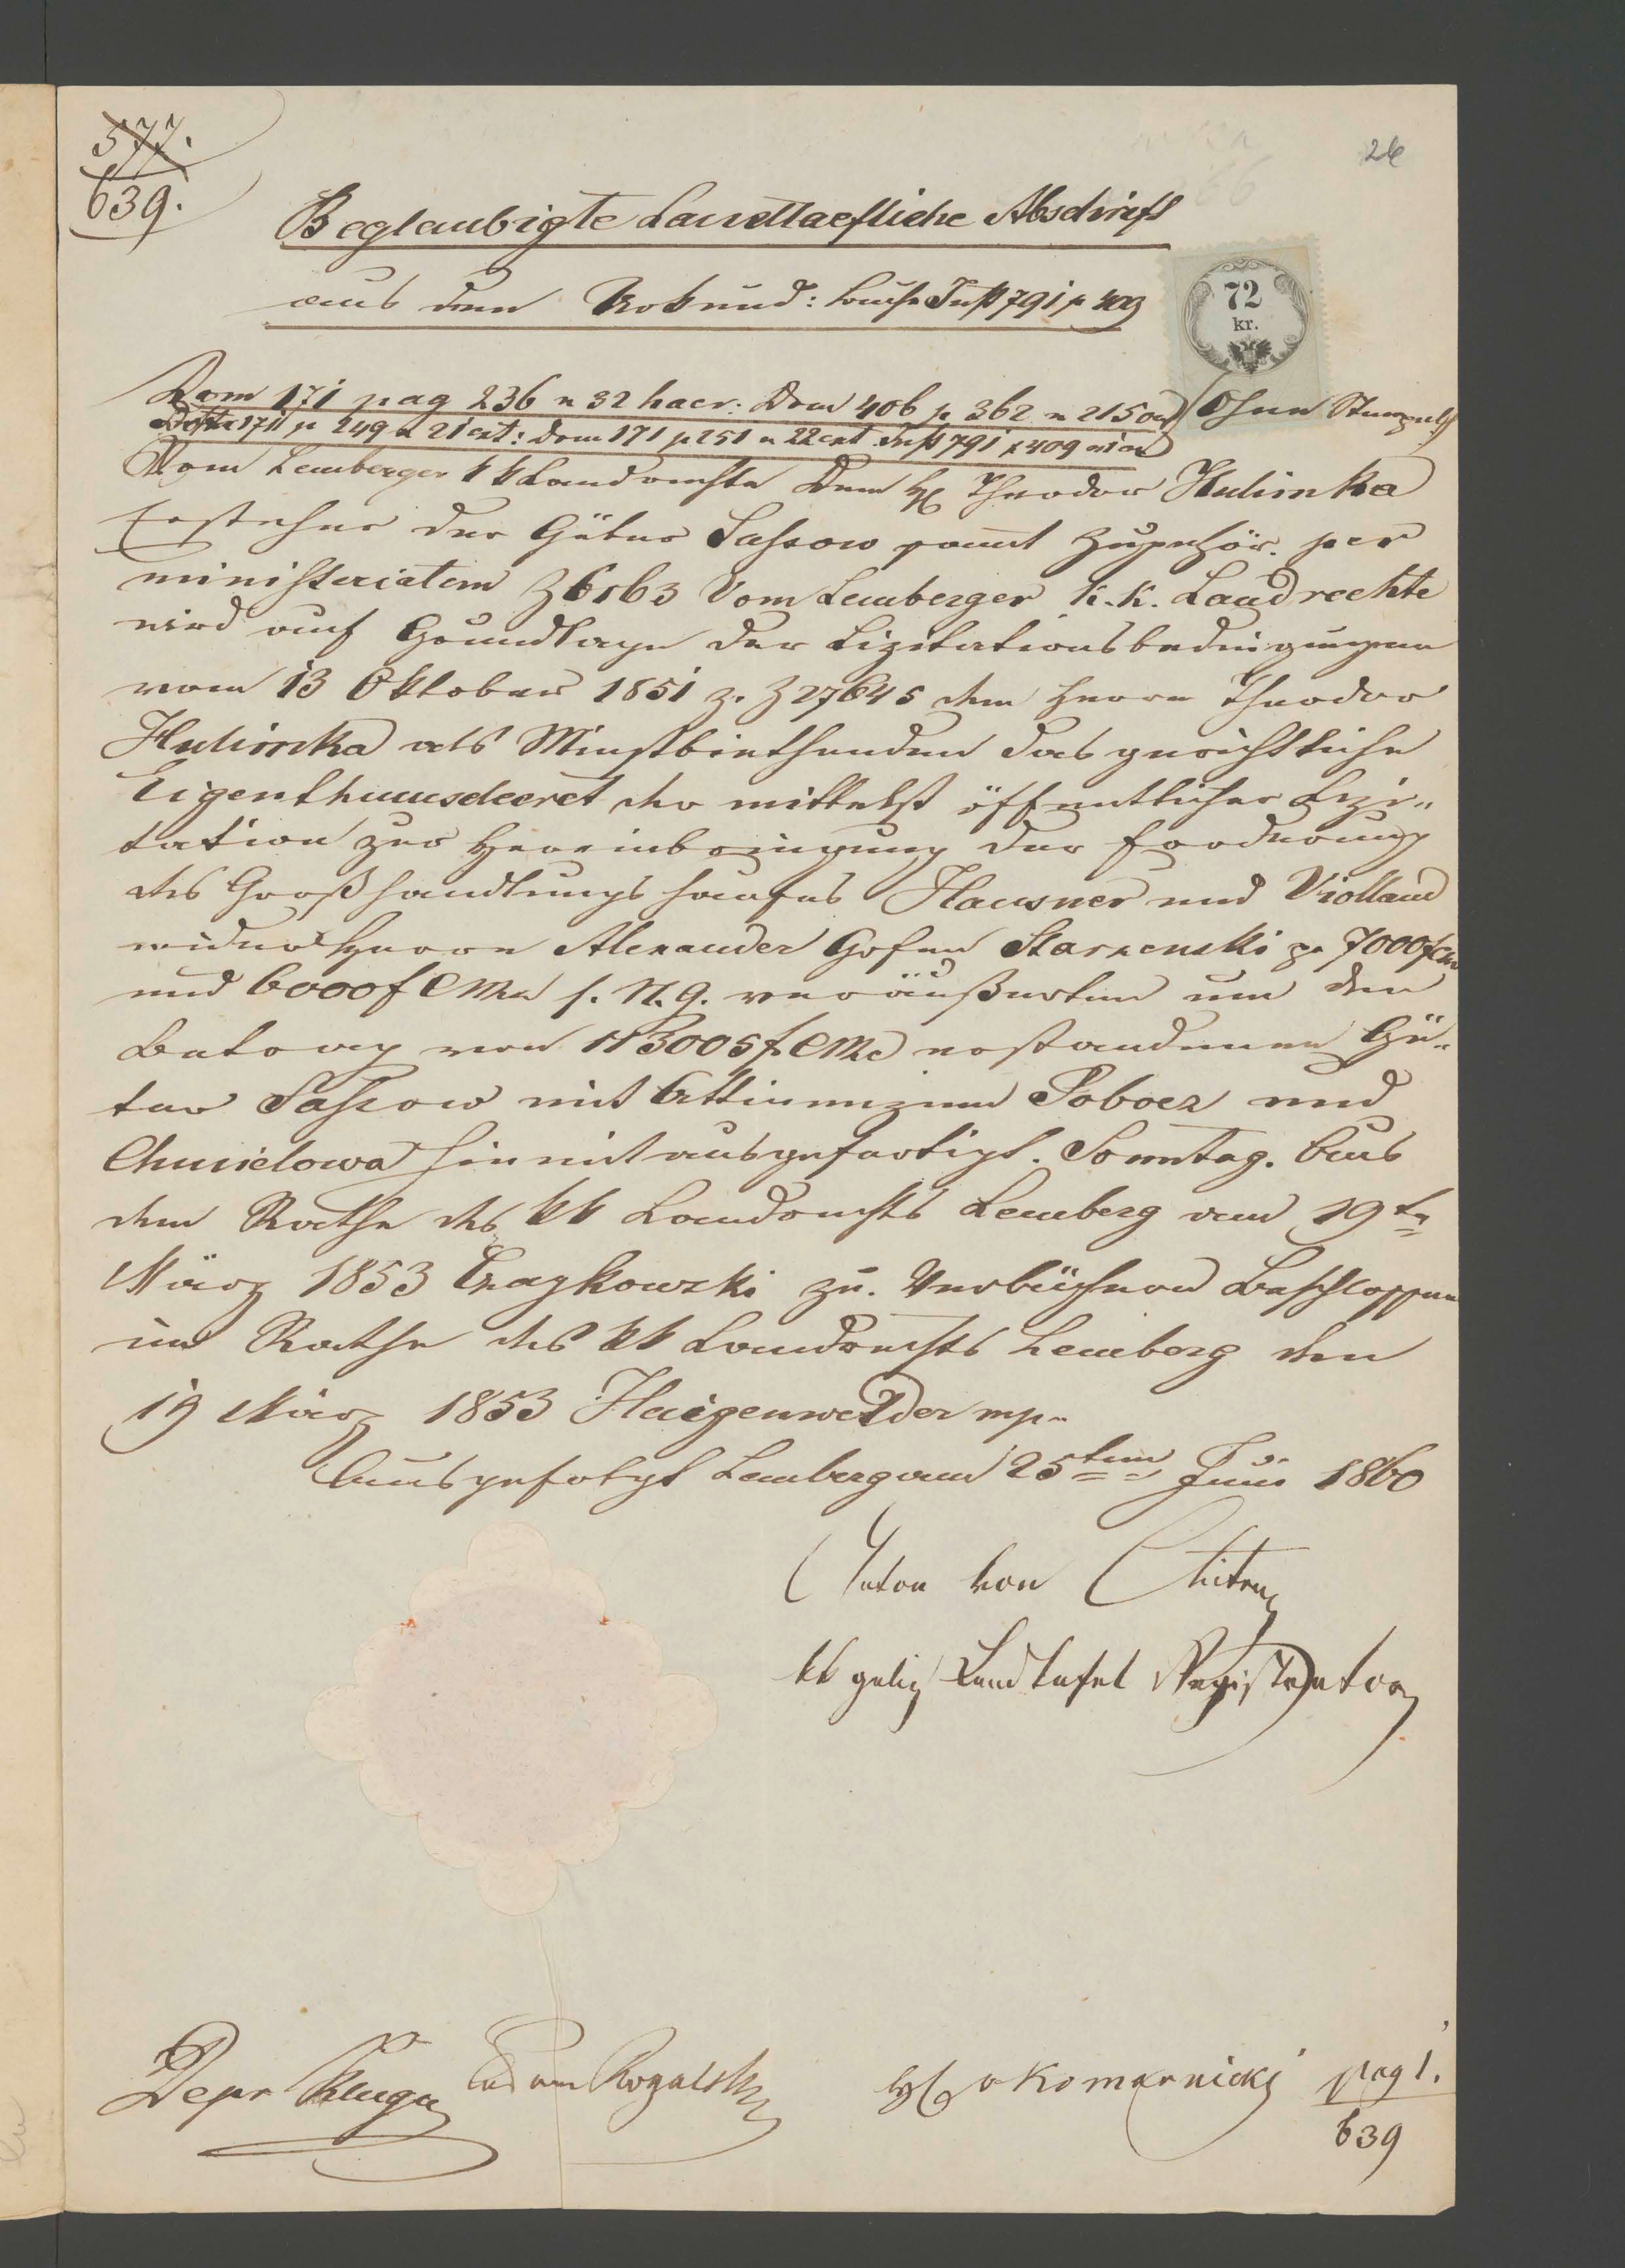 577.
639.
26
Beglaubigte Landtaefliche Abschrift
aus dem Urkund: buche Inst 791 p 409
72
kr.
Dom 171 pag 236 n 32 haer: Dom 406 p 362 n 215 on (Ohne Stempel)
Dom 171 p 249 n 21 ext: Dom 171 p 251 n 22 ext Inst 791 p 409 n 1 on
Vom Lemberger kk Landrechte Dem H Theodor Hulimka
Ersteher der Güter Sassow sammt Zugehör. per
ministeriatem Z 6163 Vom Lemberger k. k. Landrechte
wird auf Grundlage der Lizitationsbedingungen
vom 13 Oktober 1851 z. Z 27645 dem Herrn Theodor
Hulimka als Meistbiethenden das gerichtliche
Eigenthumsdecret der mittelst öffentlicher Lizi„
tation zur Hereinbringung der Forderung
des Großhandlungshauses Hausner und Violland
wider Herrn Alexander Grafen Starzenski pr 7000 f CM
und 6000 f CMze s. N. g. veräußerten um den
Betrag von 113005 f CMze erstandenen Gü„
ter Sassow mit Attinenzien Pobocz und
Chmielowa hiemit ausgefertigt. Sonntag. Aus
dem Rathe des kk Landrechts Lemberg am 19te
März 1853 Czaykowski zu. Verbüchern Beschlossen
im Rathe des kk Landrechts Lemberg den
19 März 1853 Haigenwelder mp.
Ausgefolgt Lemberg am 25ten Juni 1860
Anton von
kk galiz Landtafel Registrator
Depr Kluga Adam Rogalski Komarnicki pag 1.
639